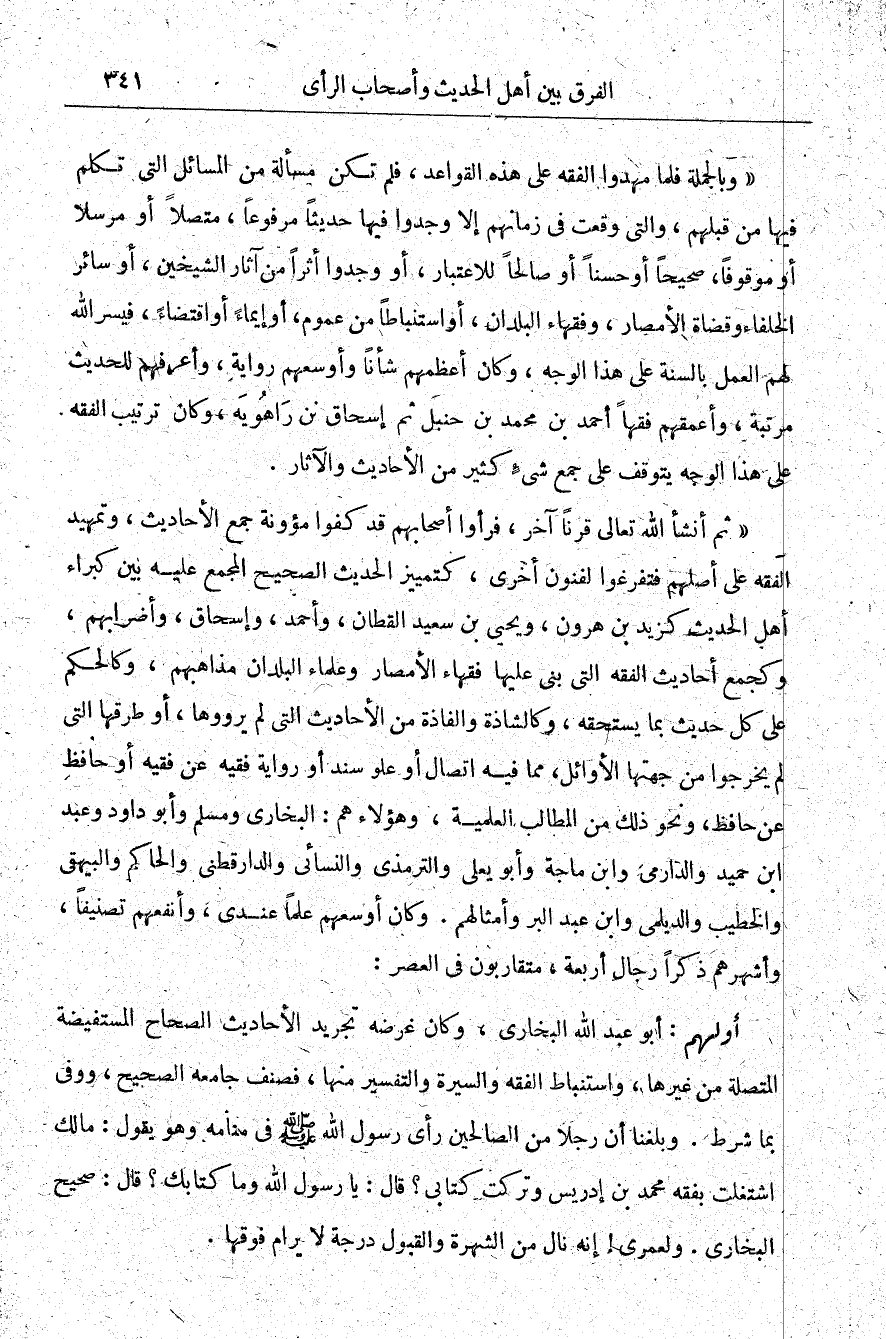 الفرق بين أهل الحديث وأصحاب الرأى ٣٤١
« وبالجملة فلما مهدوا الفقه على هذه القواعد ، فلم تكن مسألة من المسائل التى تكلم
فيها من قبلهم ، والتى وقعت فى زمانهم إلا وجدوا فيها حديثاً مرفوعاً ، متصلاً أو مرسلا
أو موقوفاً، صحيحاً أو حسناً أو صالحاً للاعتبار ، أو وجدوا أثراً من آثار الشيخين ، أو سائر
الخلفاء وقضاة الأمصار ، وفقهاء البلدان ، أو استنباطاً من عموم، أو إيماءً أو اقتضاءً ، فيسر الله
لهم العمل بالسنة على هذا الوجه ، وكان أعظمهم شأناً وأوسعهم رواية ، وأعرفهم للحديث
مرتبة ، وأعمقهم فقهاً أحمد بن محمد بن حنبل ثم إسحاق بن رَاهُويَه ، وكان ترتيب الفقه
على هذا الوجه يتوقف على جمع شىءٍ كثير من الأحاديث والآثار .
« ثم أنشأ الله تعالى قرناً آخر ، فرأوا أصحابهم قد كفوا مؤونة جمع الأحاديث ، وتمهيد
الفقه على أصلهم فتفرغوا لفنون أخرى ، كتمييز الحديث الصحيح المجمع عليه بين كبراء
أهل الحديث كزيد بن هرون ، ويحيى بن سعيد القطان ، وأحمد ، وإسحاق ، وأضرابهم ،
وكجمع أحاديث الفقه التى بنى عليها فقهاء الأمصار وعلماء البلدان مذاهبهم ، وكالحكم
على كل حديث بما يستحقه ، وكالشاذة والفاذة من الأحاديث التى لم يرووها ، أو طرقها التى
لم يخرجوا من جهتها الأوائل، مما فيه اتصال أو علو سند أو رواية فقيه عن فقيه أو حافظ
عن حافظ، ونحو ذلك من المطالب العلمية ، وهؤلاء هم : البخارى ومسلم وأبو داود وعبد
ابن حميد والدارمى وابن ماجة وأبو يعلى والترمذى والنسائى والدارقطنى والحاكم والبيهقى
والخطيب والديلمى وابن عبد البر وأمثالهم . وكان أوسعهم علماً عندى ، وأنفعهم تصنيفاً ،
وأشهرهم ذكراً رجال أربعة ، متقاربون فى العصر :
أولهم : أبو عبد الله البخارى ، وكان غرضه تجريد الأحاديث الصحاح المستفيضة
المتصلة من غيرها ، واستنباط الفقه والسيرة والتفسير منها ، فصنف جامعه الصحيح ، ووفى
بما شرط . وبلغنا أن رجلا من الصالحين رأى رسول الله ﷺ فى منامه وهو يقول : مالك
اشتغلت بفقه محمد بن إدريس وتركت كتابى ؟ قال : يا رسول الله وما كتابك ؟ قال : صحيح
البخارى . ولعمرى ! إنه نال من الشهرة والقبول درجة لا يرام فوقها .